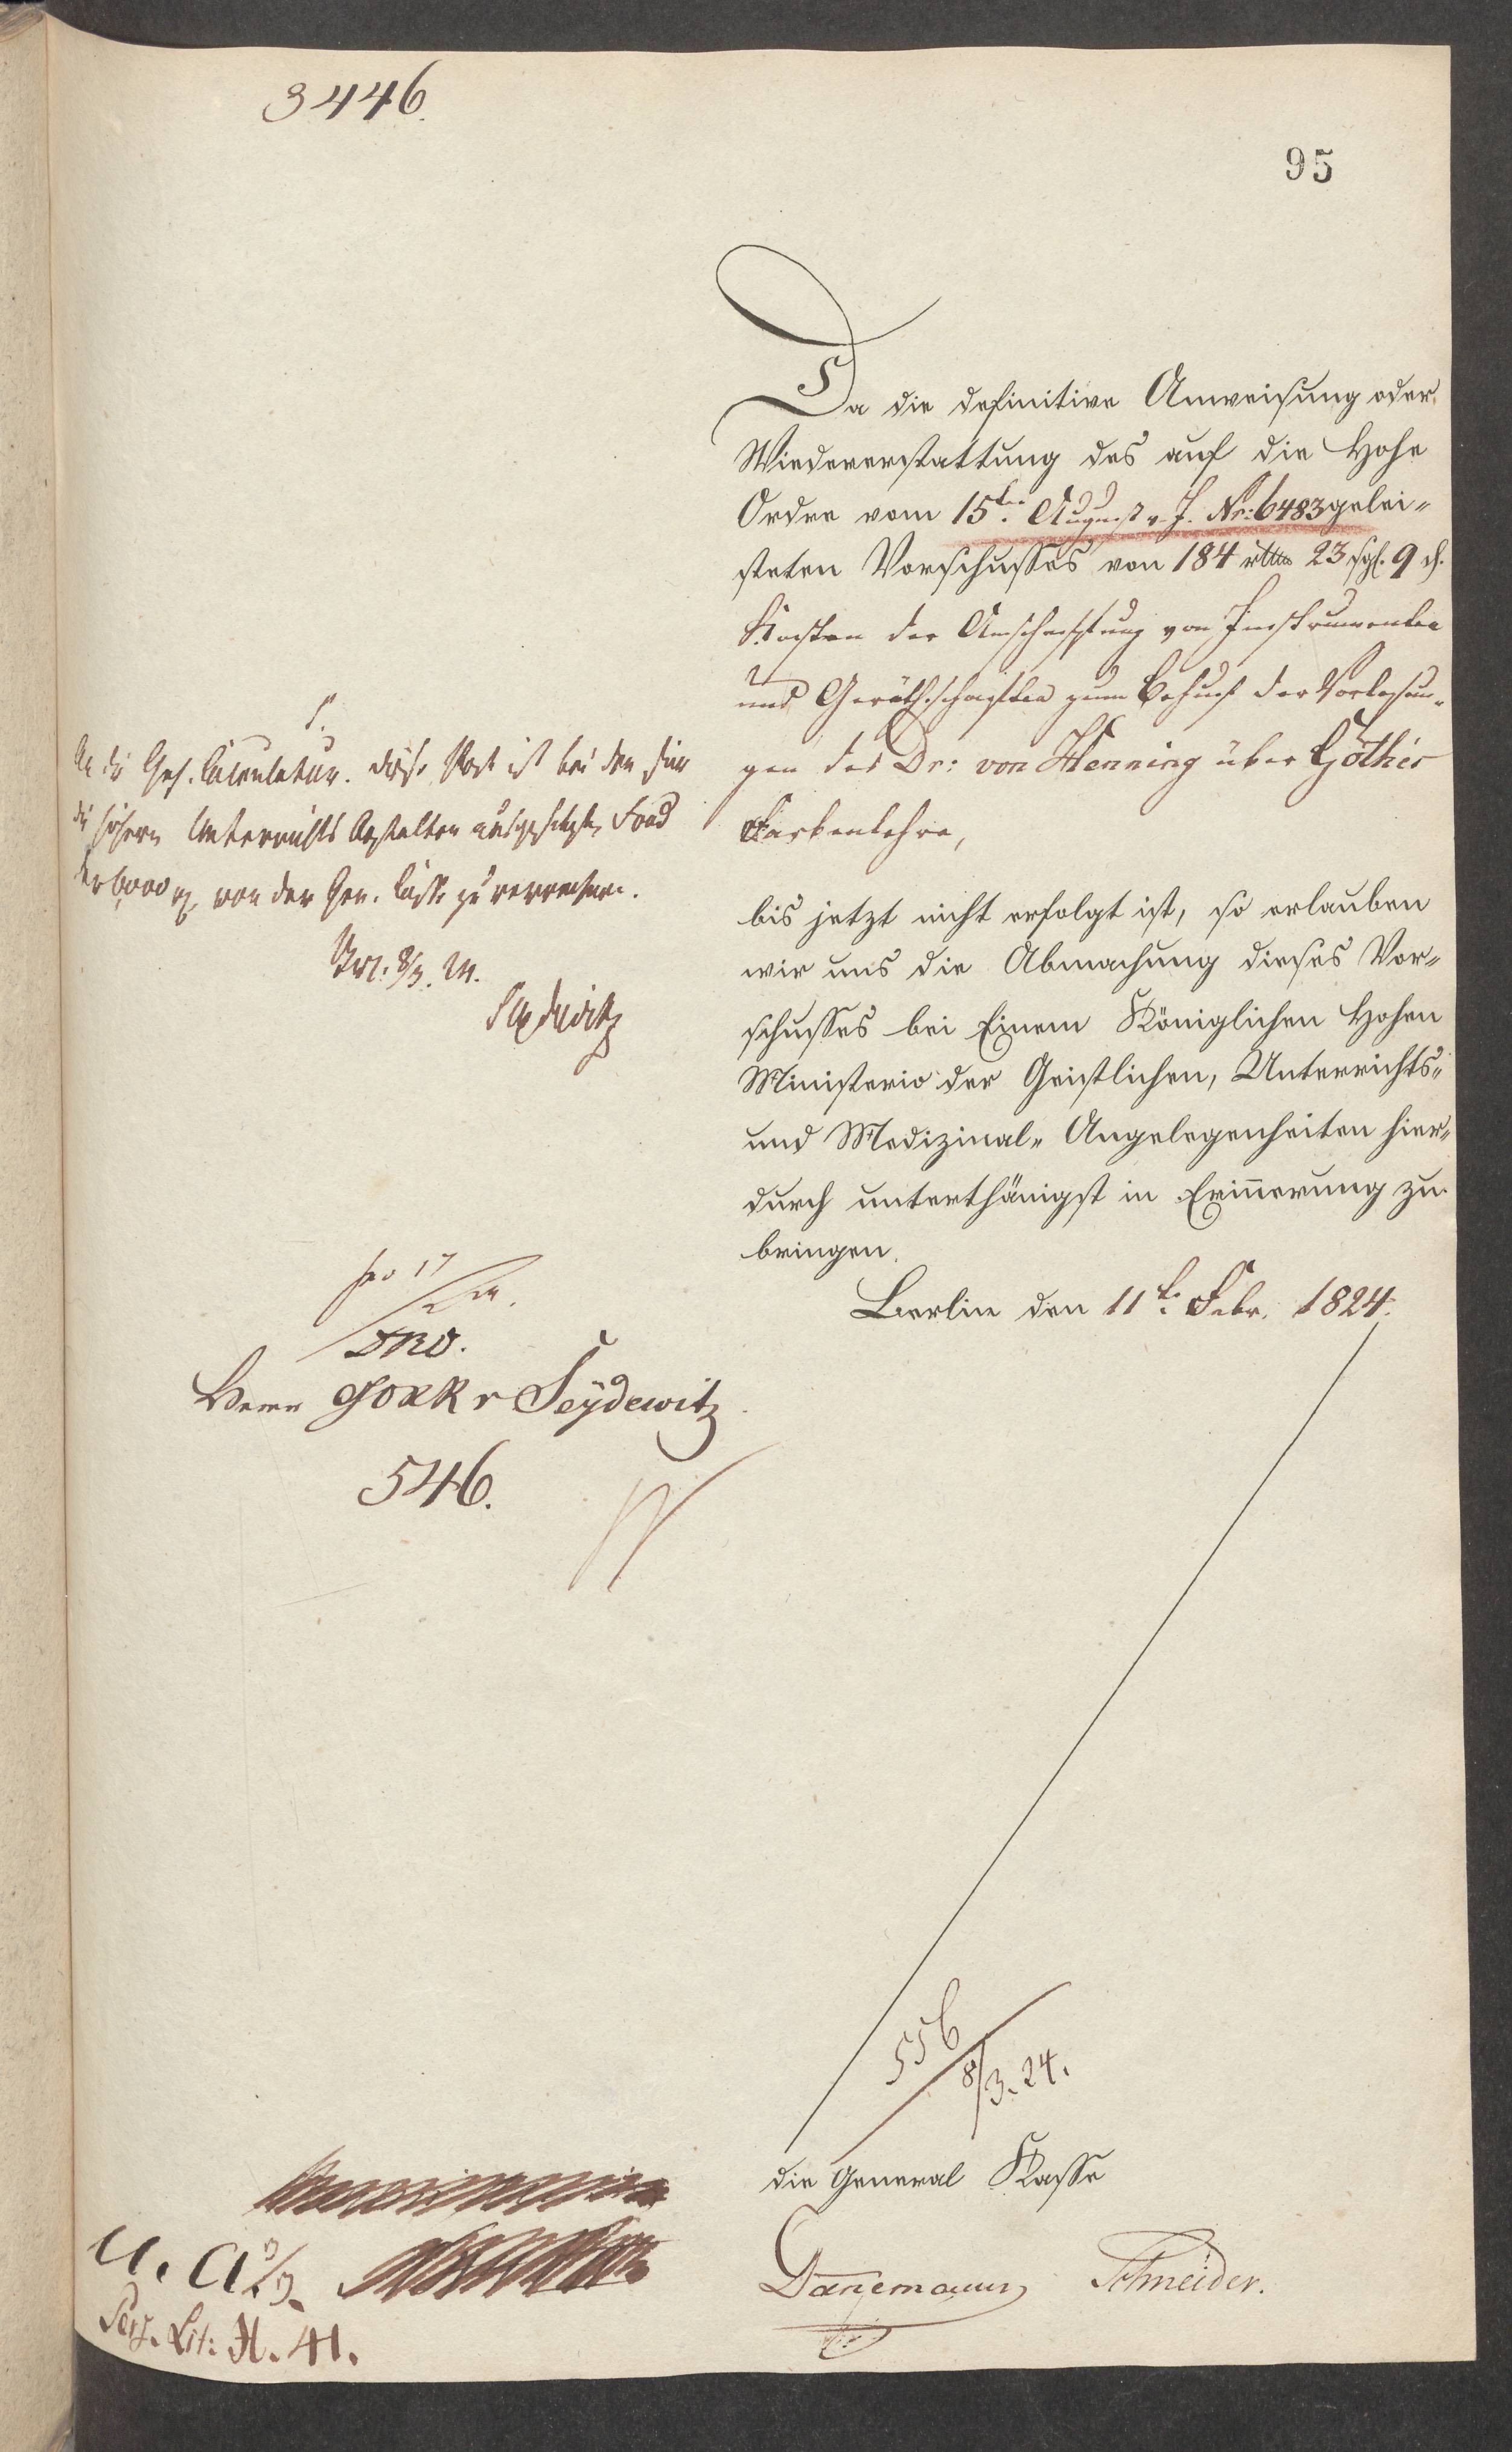 3446.
95
Da die definitive Anweisung oder
Wiedererstattung des auf die Hohe
Ordre vom 15ten August v. J. Nr: 6483 gelei-
steten Vorschußes von 184 rtlr 23 sgl. 9 d.
Kosten der Anschaffung von Instrumenten
und Geräthschaften zum Behuf der Vorlesun-
gen des Dr: von Henning über Göthes
Farbenlehre,
bis jetzt nicht erfolgt ist, so erlauben
wir uns die Abmachung dieses Vor-
schusses bei Einem Königlichen Hohen
Ministerio der Geistlichen, Unterrichts-
und Medizinal- Angelegenheiten hier-
durch unterthänigst in Erinnerung zu
bringen.
Berlin den 11t. Febr. 1824.
An die Geh. Calculatur. Diese Post ist bei den für
die höhern Unterrichts Anstalten ausgesetzten Fond
der 6000 von der Gen. Casse zu verrechnen.
Brl. 8/3. 24.
Seydewitz
17/2 24.
Herrn GORR v Seydewitz
546.
556
8/3. 24.
die General Kasse
Danemann Schneider.
U. A.
Lit: H. 41.